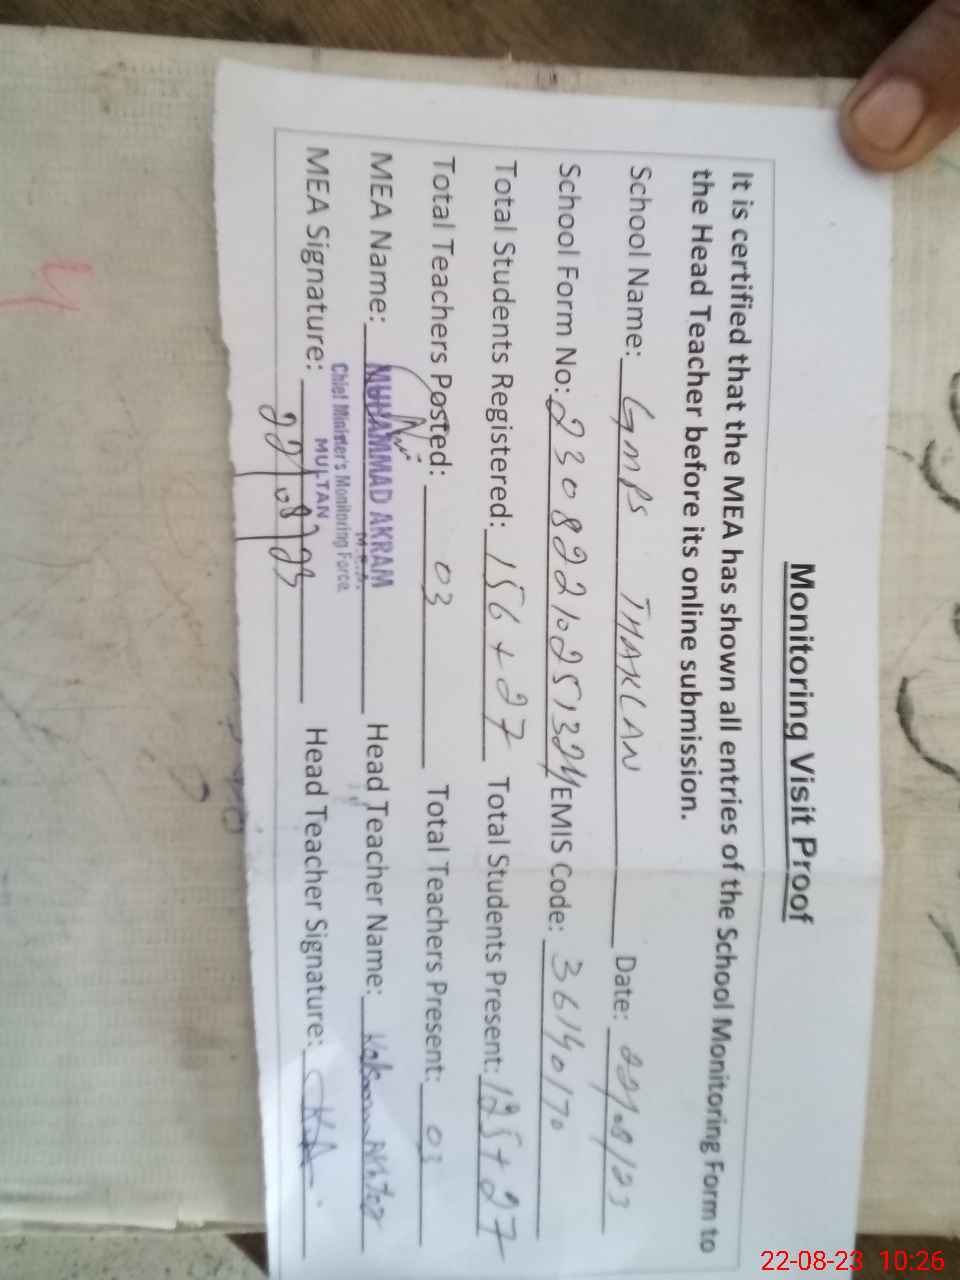 Monitoring Visit Proof
It is certified that the MEA has shown all entries of the School Monitoring Form to
the Head Teacher before its online submission.
School Name: GMPS THAKLAN Date: 22/08/23
School Form No: 23082210251324 EMIS Code: 36140170
Total Students Registered: 156 + 27 Total Students Present: 125 + 27
Total Teachers Posted: 03 Total Teachers Present: 03
MEA Name: MUHAMMAD AKRAM Head Teacher Name:
M.E.A.
Chief Minister's Monitoring Force
MULTAN
MEA Signature: 22/08/23 Head Teacher Signature: KA
22-08-23 10:26